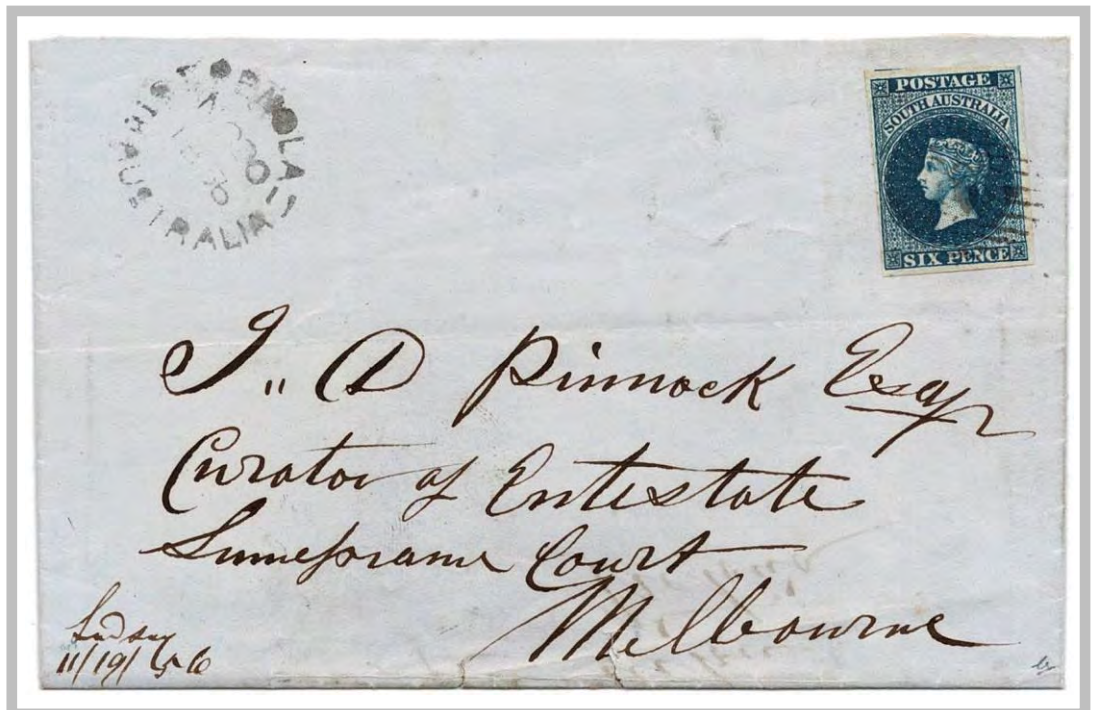 PENOLA
AUSTRALIA
POSTAGE
SOUTH AUSTRALIA
SIX PENCE
J,, D Pinnock Esqr
Curator of Entestate
Court
Melbourne
Lindsay
11/19/56